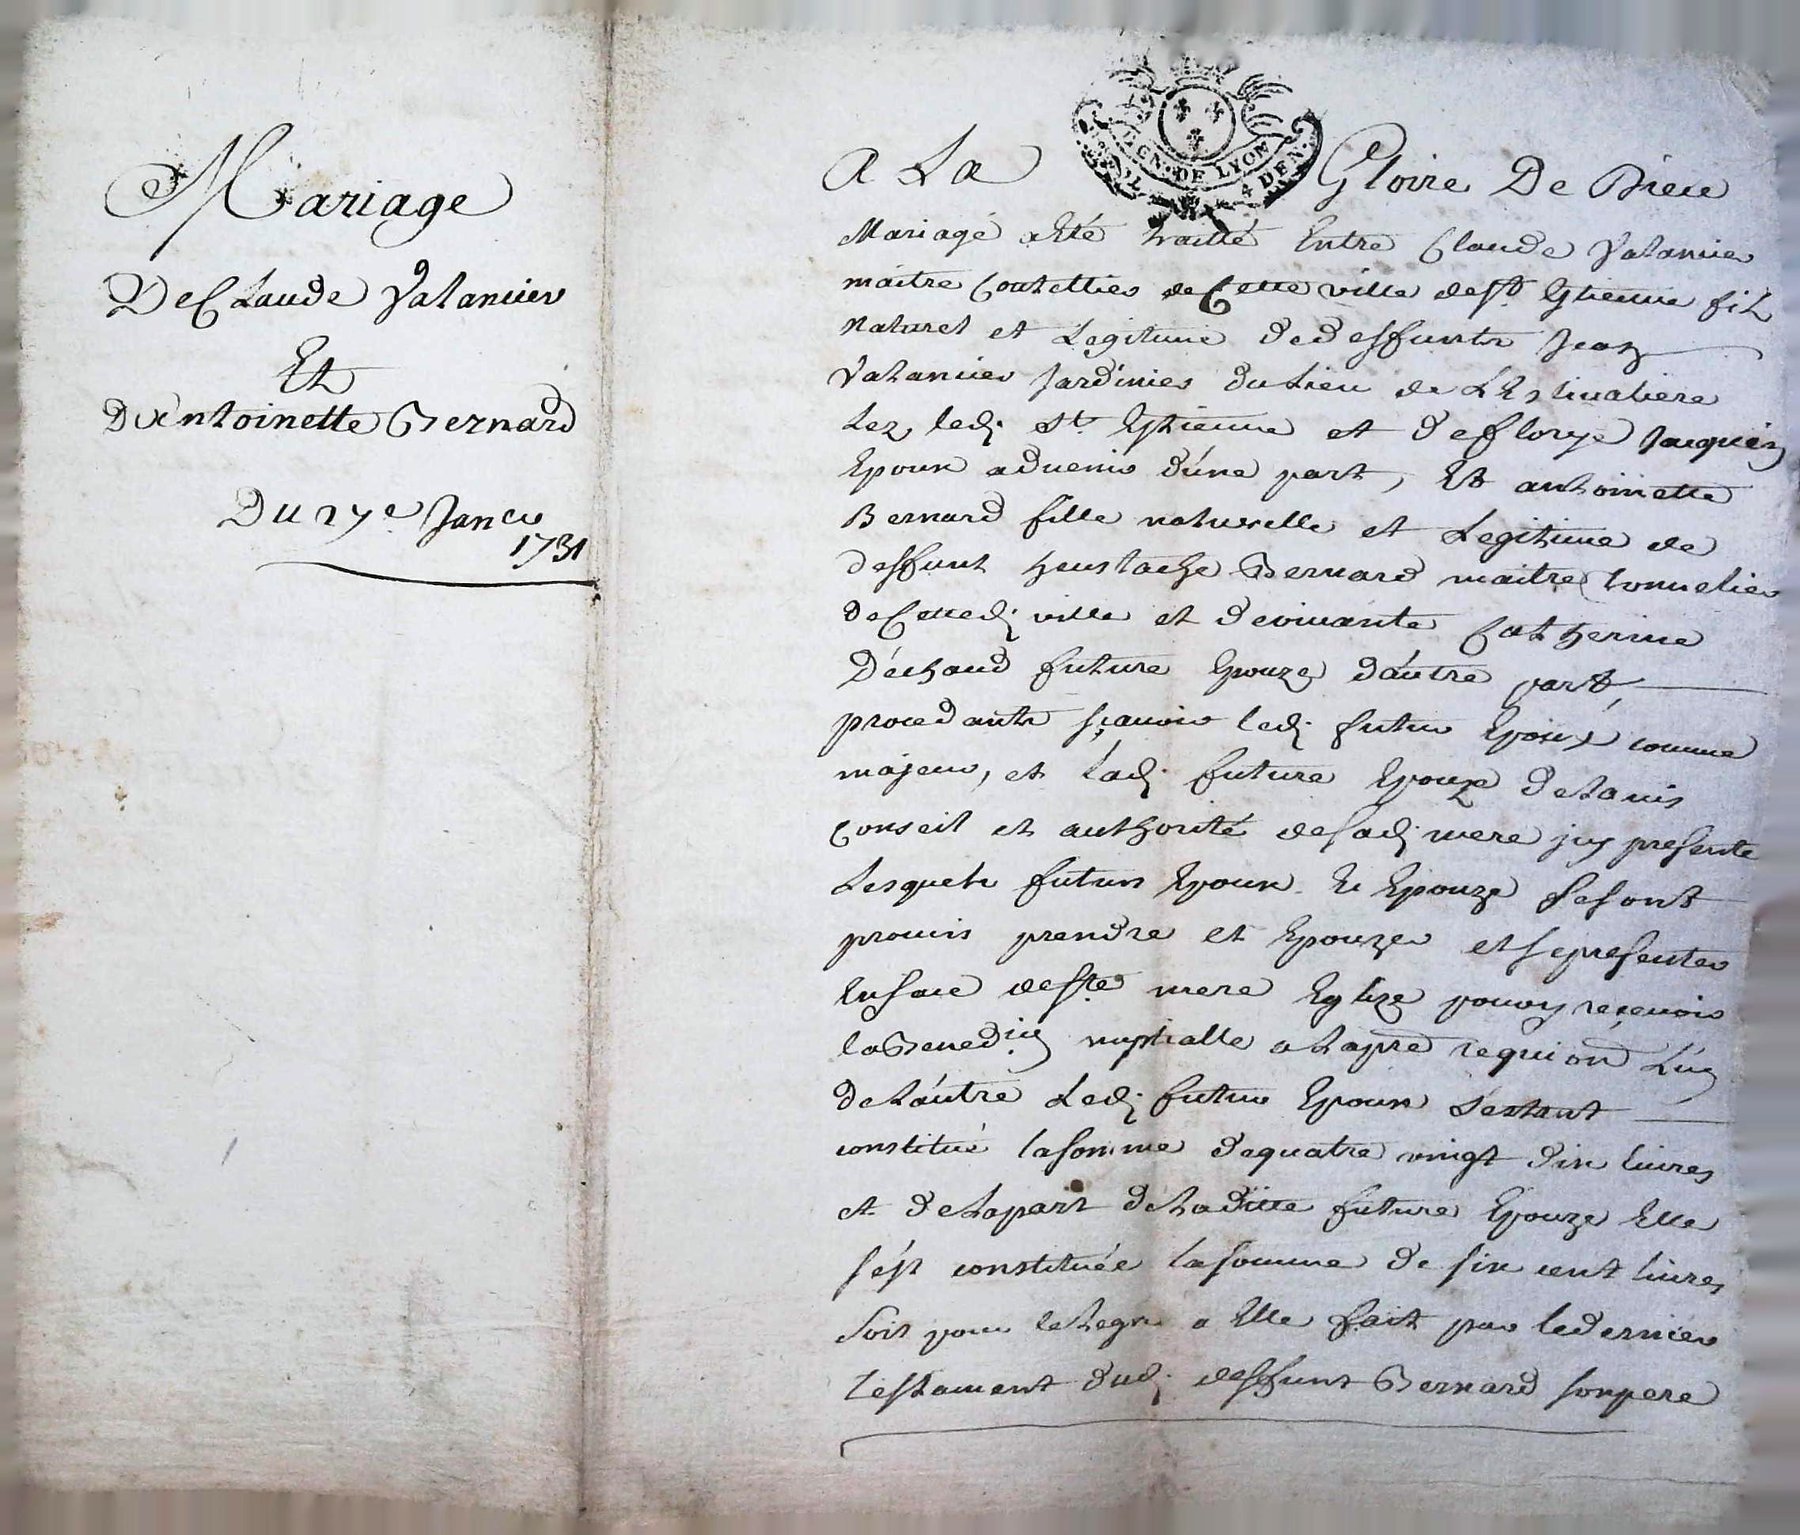 Mariage
De Claude Valancier
Et
D'Antoinette Bernard
Du 27e Jancer
1731
GEN. DE LYON
4 DEN.
A La Gloire De Dieu
Mariage a Eté traitté Entre Claude Valancier
maitre Coutellier de Cette ville de St Etienne fils
naturel et Legitime de deffunts Jean
Valancier Jardinier du Lieu de L'Estivaliere
Lez led. St. Etienne et de Floryé Jacquier
Epoux advenir d'une part, Et antoinette
Bernard fille naturelle et Legitime de
deffunt heustache Bernard maitre tonnelier
de Cetted. ville et de vivante Catherine
Déchaud future Epouze d'autre part,
procedants sçavoir led. futur Epoux comme
majeur, et lad. future Epouze de l'avis
conseil et authorité de sad. mere icy presente
Lesquels futurs Epoux Et Epouze se sont
promis prendre et Epouzer et se presenter
En face de Ste mere Eglize pour y recevoir
la Bened.ion nuptialle a la pre. requi.on L'un
de L'autre Led. futur Epoux s'estant
constitué la somme de quatre vingt dix livres
et de la part de la ditte future Epouze Elle
s'est constituée la somme de six cent livres
Soit pour le legs a Elle fait par le dernier
testament dud. deffunt Bernard son pere